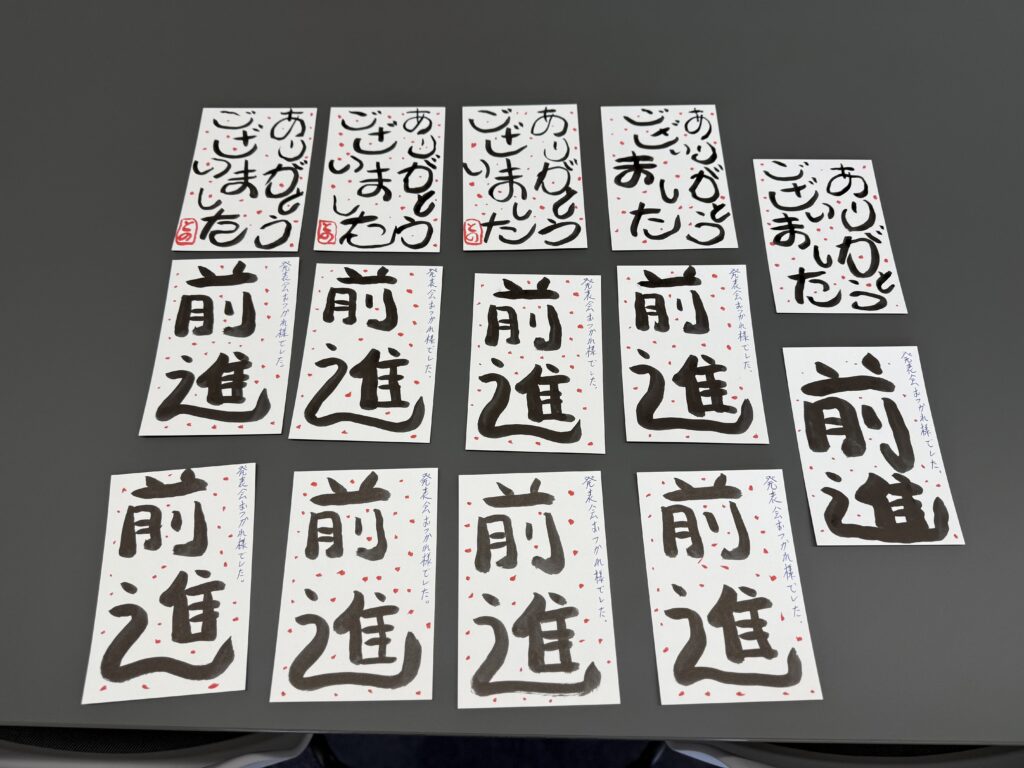 ありがとう
ございました
との
ありがとう
ございました
との
ありがとう
ございました
との
ありがとう
ございました
ありがとう
ございました
発表会おつかれ様でした。
前進
発表会おつかれ様でした。
前進
発表会おつかれ様でした。
前進
発表会おつかれ様でした。
前進
発表会おつかれ様でした。
前進
発表会おつかれ様でした。
前進
発表会おつかれ様でした。
前進
発表会おつかれ様でした。
前進
発表会おつかれ様でした。
前進